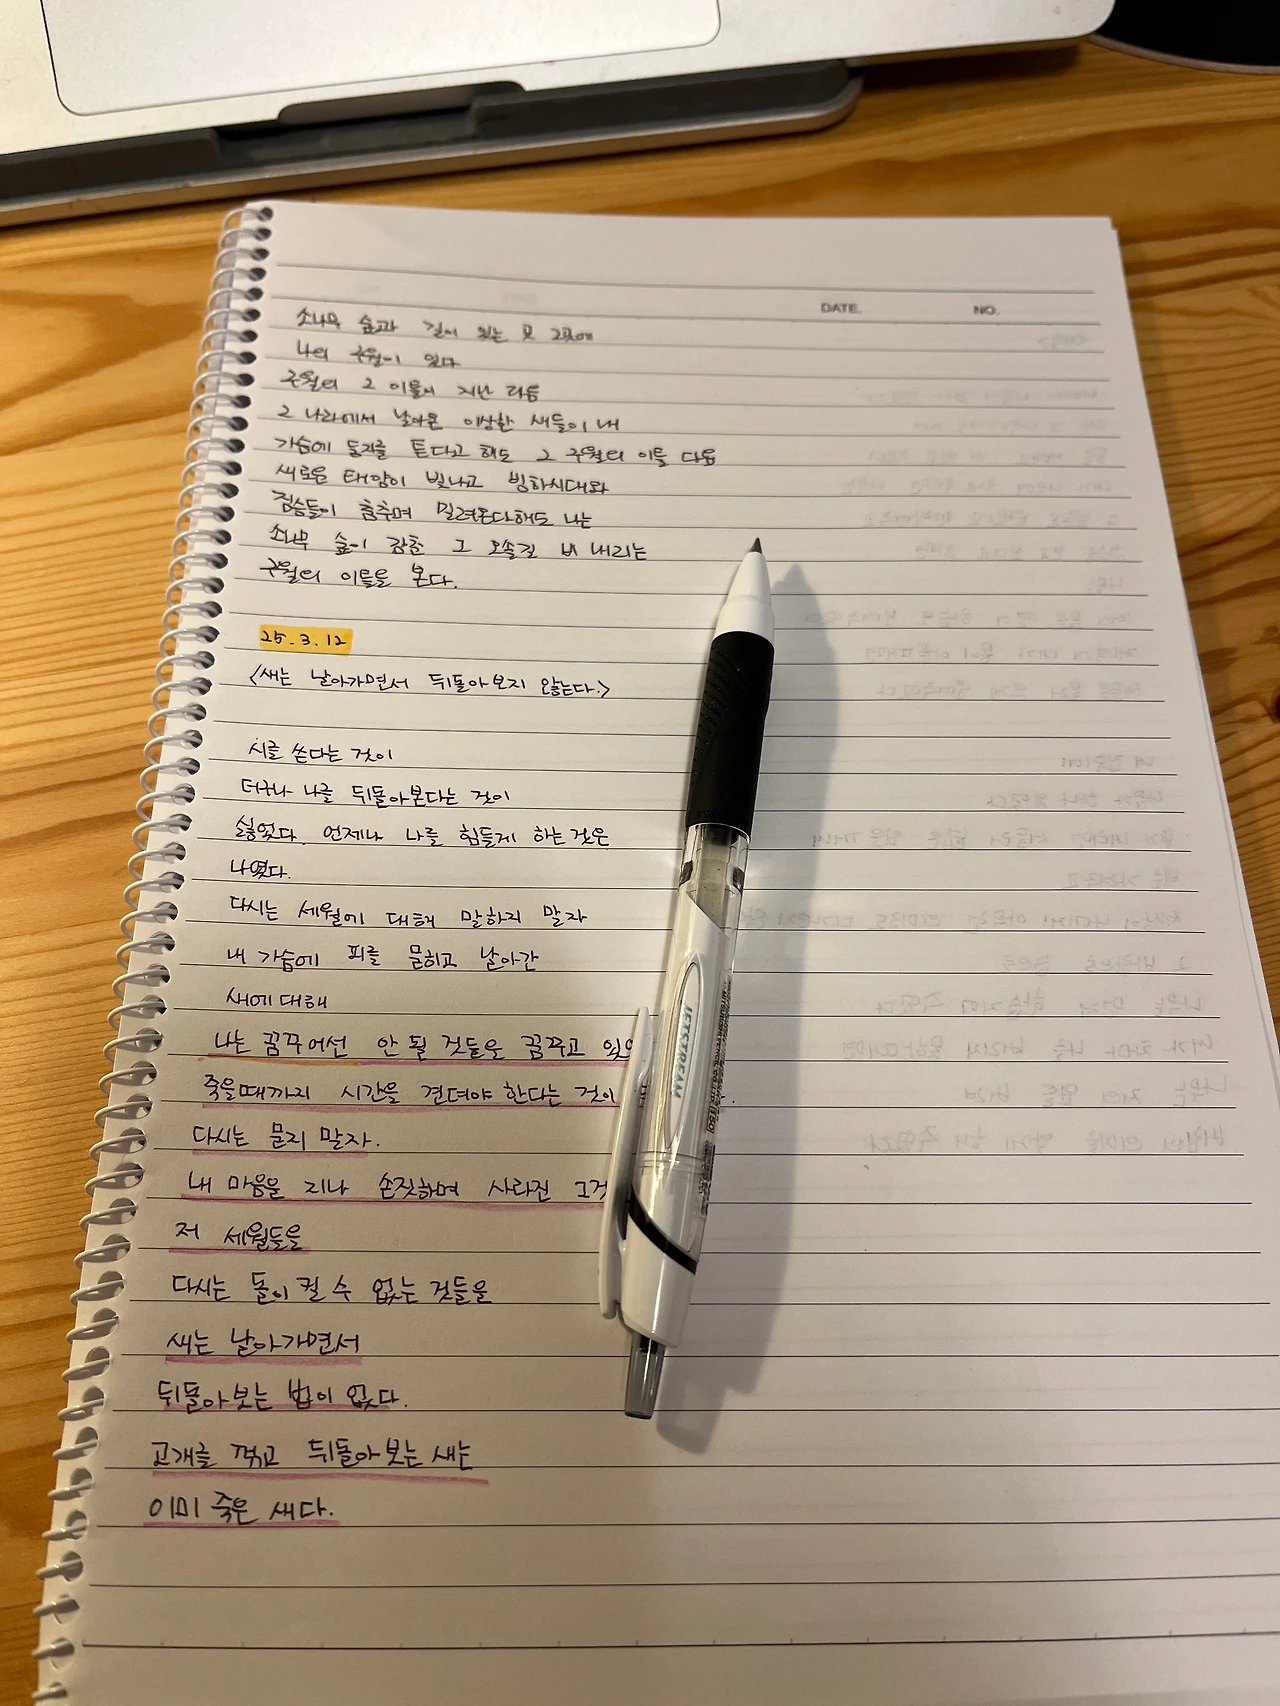 DATE. NO.
소나무 숲과 길이 있는 곳 그곳에
나의 구월이 있다
구월의 그 이틀이 지난 다음
그 나라에서 날아온 이상한 새들이 내
가슴에 둥지를 튼다고 해도 그 구월의 이틀 다음
새로운 태양이 빛나고 빙하시대와
짐승들이 춤추며 밀려온다해도 나는
소나무 숲이 감춘 그 오솔길 비 내리는
구월의 이틀을 본다.
25.3.12
<새는 날아가면서 뒤돌아보지 않는다.>
시를 쓴다는 것이
더구나 나를 뒤돌아본다는 것이
싫었다. 언제나 나를 힘들게 하는 것은
나였다.
다시는 세월에 대해 말하지 말자
내 가슴에 피를 묻히고 날아간
새에 대해
나는 꿈꾸어선 안 될 것들을 꿈꾸고
죽을때까지 시간을 견뎌야 한다는 것이
다시는 묻지 말자.
내 마음을 지나 손짓하며 사라진 그것
저 세월들을
다시는 돌이킬 수 없는 것들을
새는 날아가면서
뒤돌아보는 법이 없다.
고개를 꺾고 뒤돌아보는 새는
이미 죽은 새다.
JETSTREAM